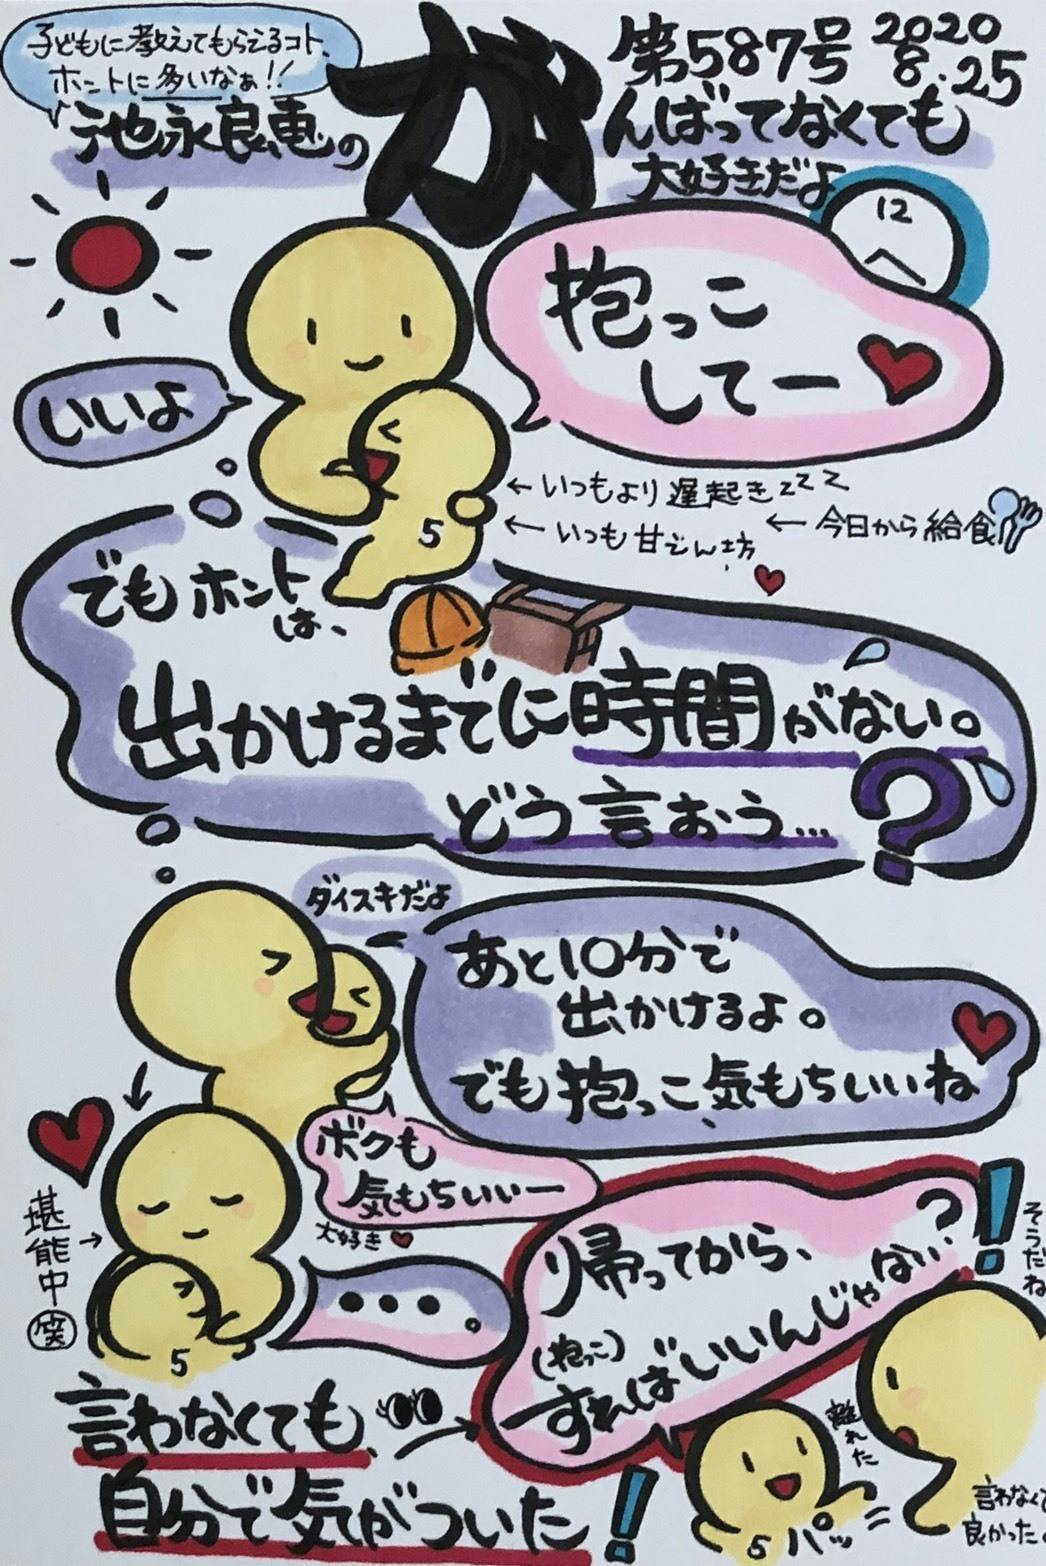 子どもに教えてもらえるコト、
ホントに多いなぁ!!
第587号
2020
8.25
池永良恵の
がんばってなくても
大好きだよ
12
抱っこ
してー
いいよ
←いつもより遅起きzzz
←いつも甘えん坊
←今日から給食
5
でもホント
は、
出かけるまでに時間がない。
どう言おう…?
ダイスキだよ
あと10分で
出かけるよ。
でも抱っこ気もちいいね
ボクも
気もちいいー
大好き
堪能中
笑
→
5
・・・。
帰ってから、
(抱っこ)
すればいいんじゃない?
!
そうだね
言わなくても、
自分で気がついた!
離れた
5
パッ
言わなくて
良かった。